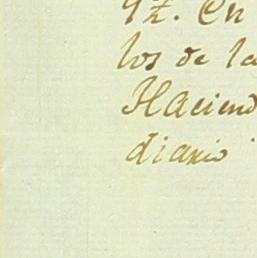 92. En
los de la
Haciend
diario